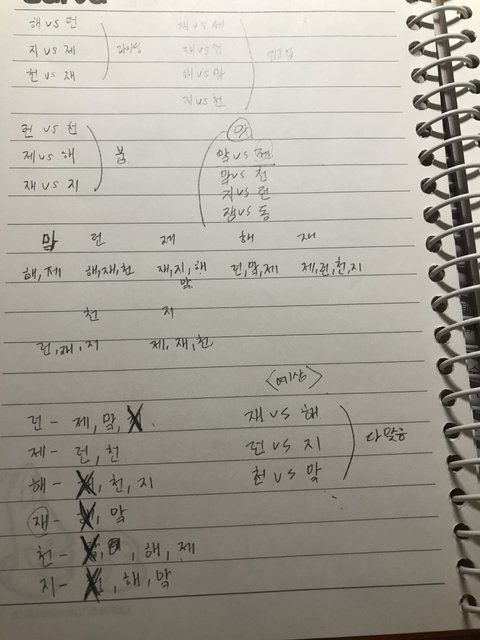 해 vs 런
지 vs 제
천 vs 재
재 vs 제
해 vs 맘
지 vs 천
런 vs 천
제 vs 해
재 vs 지
봄
맘
맘 vs 제
맘 vs 천
지 vs 런
잼 vs 동
맘 런 제 해 재
해, 제 해, 재, 천 재, 지, 해 런, 맘, 제 제, 런, 천, 지
맘
천 지
런, 재, 지 제, 재, 천
<예상>
런 - 제, 맘,
제 - 런, 천
해 - , 천, 지
재 - , 맘
천 - , 해, 제
지 - , 해, 맘
재 vs 해
런 vs 지
천 vs 맘
다 맞음